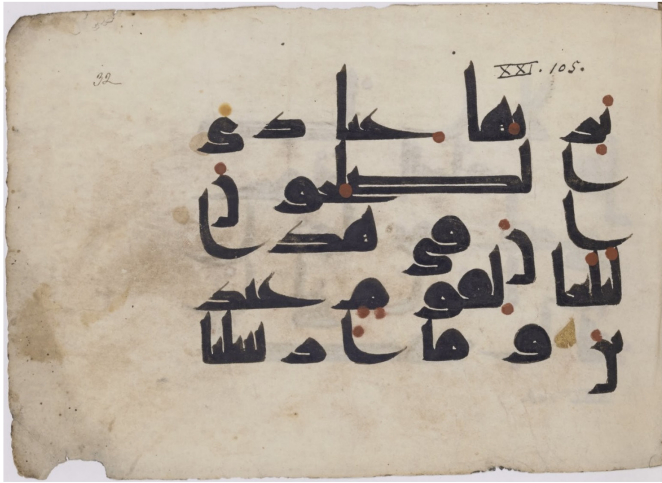 32
XXI. 105.
يرثها عبادي
الصلحون
ان في هذا
لبلغا لقوم عبد
ين وما ارسلنا